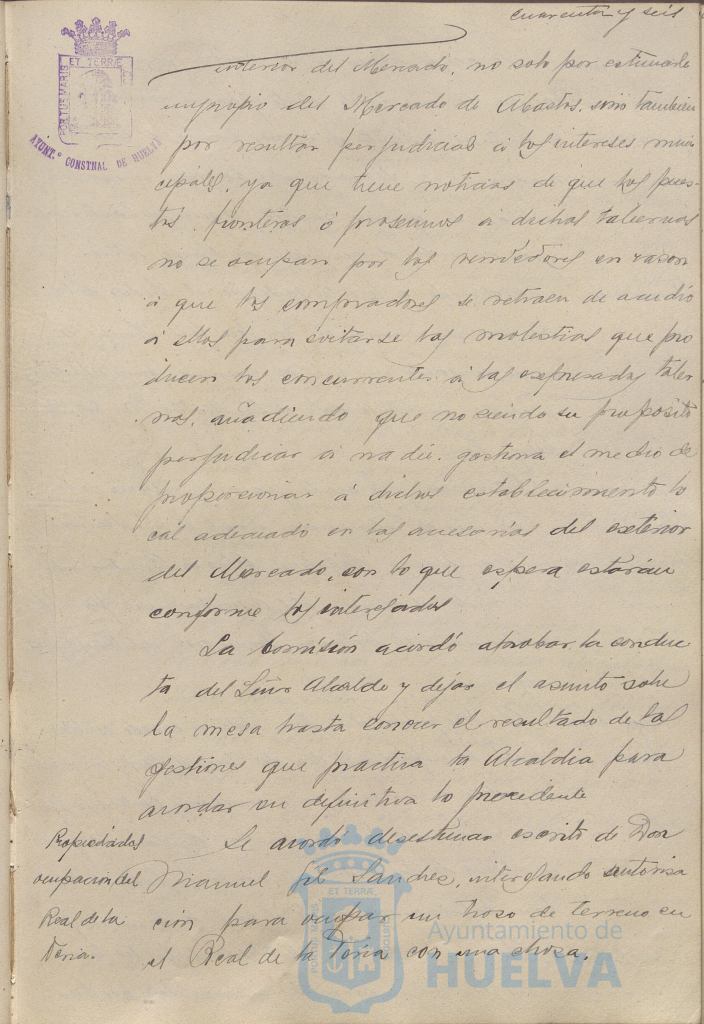 cuarenta y seis
PORTUS MARIS
ET TERRÆ
AYUNT.º CONSTNAL DE HUELVA
interior del Mercado, no solo por estimarlo
impropio del Mercado de Abastos, sino tambien
por resultar perjudicial á los intereses muni
cipales, ya que tiene noticias de que los pues-
tos fronteros ó proximos á dichas tabernas
no se ocupan por los vendedores en razon
á que los compradores se retraen de acudir
á ellos para evitarse las molestias que pro
ducen los concurrentes á las expresadas taber
nas, añadiendo que no siendo su proposito
perjudicar á nadie, gestiona el medio de
proporcionar á dichos establecimiento lo
cal adecuado en las accesorias del exterior
del Mercado, con lo que espera estarán
conforme los interesados
La Comisión acordó aprobar la conduc
ta del Señor Alcalde y dejar el asunto sobre
la mesa hasta conocer el resultado de las
gestiones que practica la Alcaldia para
acordar en definitiva lo procedente
Propiedades
ocupacion del
Real de la
Feria.
Se acordó desestimar escrito de Don
Manuel Gil Sanchez, interesando autoriza
ción para ocupar un trozo de terreno en
el Real de la Feria con una choza.
PORTUS MARIS
ET TERRÆ
CUSTODIA
Ayuntamiento de
HUELVA